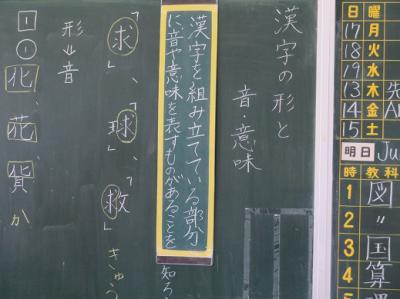 漢字の形と
音・意味
漢字を組み立てている部分
に音や意味を表すものがあることを
知ろ
「求」、「球」、「救」きゅう
形⇓音
1 ① 化、花、貨 か
日 曜
17 月
18 火
19 水
13 木 先
14 金
15 土
明日 Ju
時 教科
1 図
2 〃
3 国
4 算
5 理